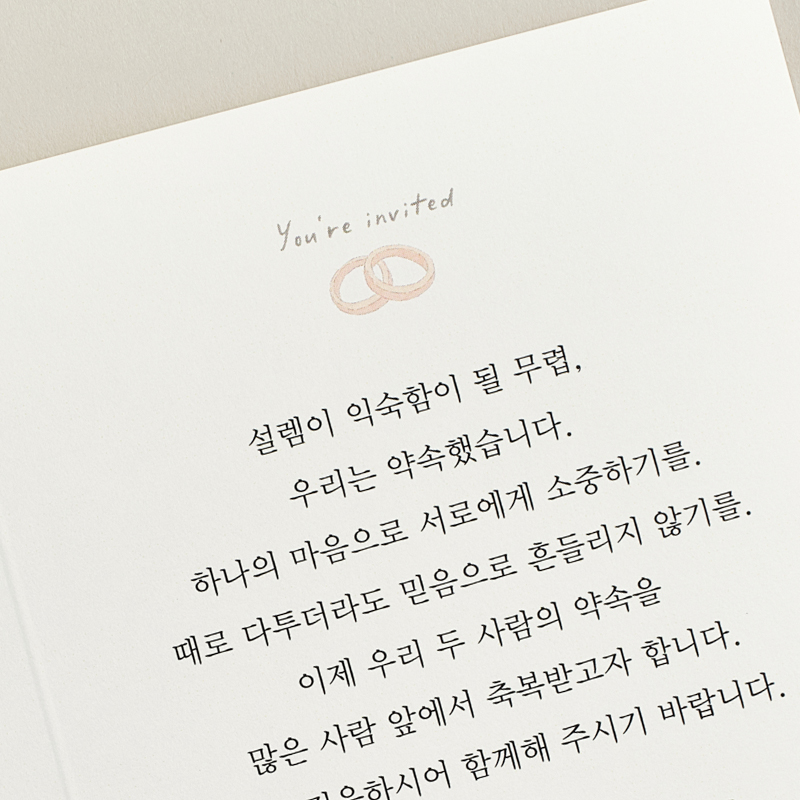 You're invited
설렘이 익숙함이 될 무렵,
우리는 약속했습니다.
하나의 마음으로 서로에게 소중하기를.
때로 다투더라도 믿음으로 흔들리지 않기를.
이제 우리 두 사람의 약속을
많은 사람 앞에서 축복받고자 합니다.
함께해 주시기 바랍니다.